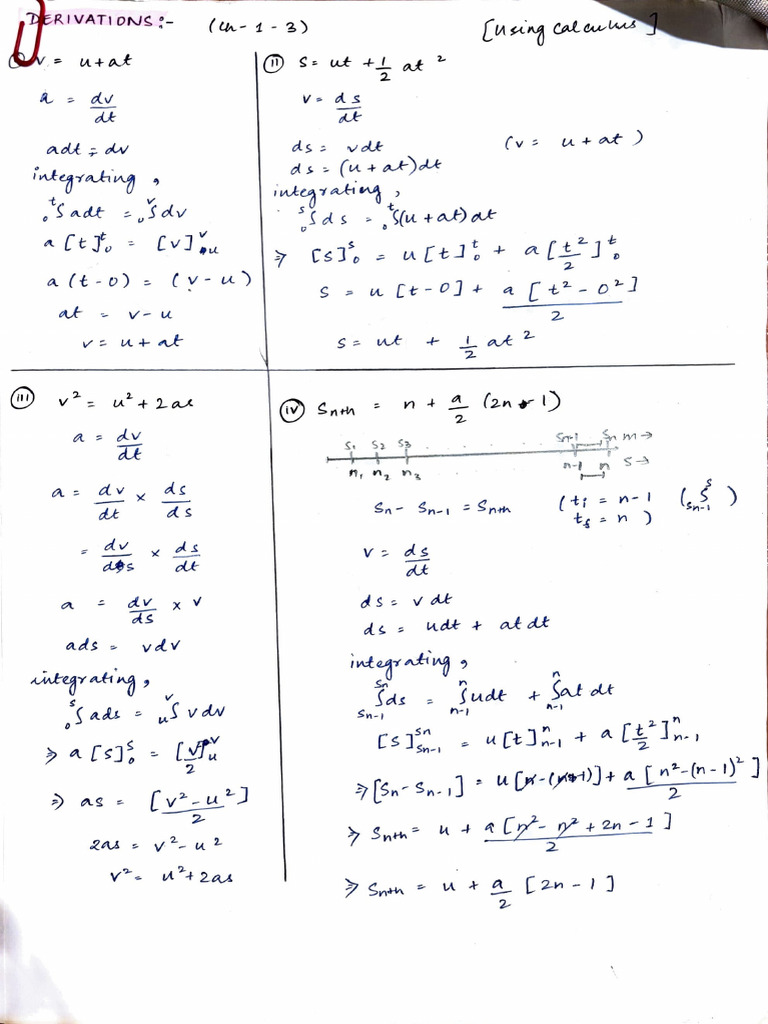 DERIVATIONS:- (Ch-1-3) [Using calculus]
(i) v = u+at
a = dv/dt
adt = dv
integrating,
₀ᵗ∫adt = ₀ᵛ∫dv
a[t]ᵗ₀ = [v]ᵛᵤ
a(t-0) = (v-u)
at = v-u
v = u+at
(ii) s = ut + 1/2 at²
v = ds/dt
ds = vdt (v = u+at)
ds = (u+at)dt
integrating,
₀ˢ∫ds = ₀ᵗ∫(u+at)dt
⇒ [s]ˢ₀ = u[t]ᵗ₀ + a[t²/2]ᵗ₀
s = u[t-0] + a[t²-0²]/2
s = ut + 1/2 at²
(iii) v² = u²+2as
a = dv/dt
a = dv/dt × ds/ds
= dv/ds × ds/dt
a = dv/ds × v
ads = vdv
integrating,
₀ˢ∫ads = ᵤᵛ∫vdv
⇒ a[s]ˢ₀ = [v²/2]ᵛᵤ
⇒ as = [v²-u²]/2
2as = v²-u²
v² = u²+2as
(iv) Snth = n + a/2 (2n-1)
S₁ S₂ S₃ Sn-1 Sn m→
n₁ n₂ n₃ n-1 n s→
Sn - Sn-1 = Snth (ti = n-1 (Sn-1∫S)
tf = n)
v = ds/dt
ds = vdt
ds = udt + atdt
integrating,
Sn-1∫Sn ds = n-1∫n udt + n-1∫n at dt
[s]Sn Sn-1 = u[t]n n-1 + a[t²/2]n n-1
⇒ [Sn - Sn-1] = u[n-(n-1)] + a[n²-(n-1)²]/2
⇒ Snth = u + a[n²-n²+2n-1]/2
⇒ Snth = u + a/2 [2n-1]